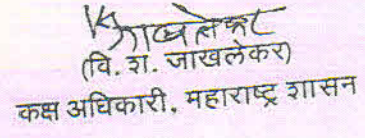 (वि. श. जाखलेकर)
कक्ष अधिकारी, महाराष्ट्र शासन